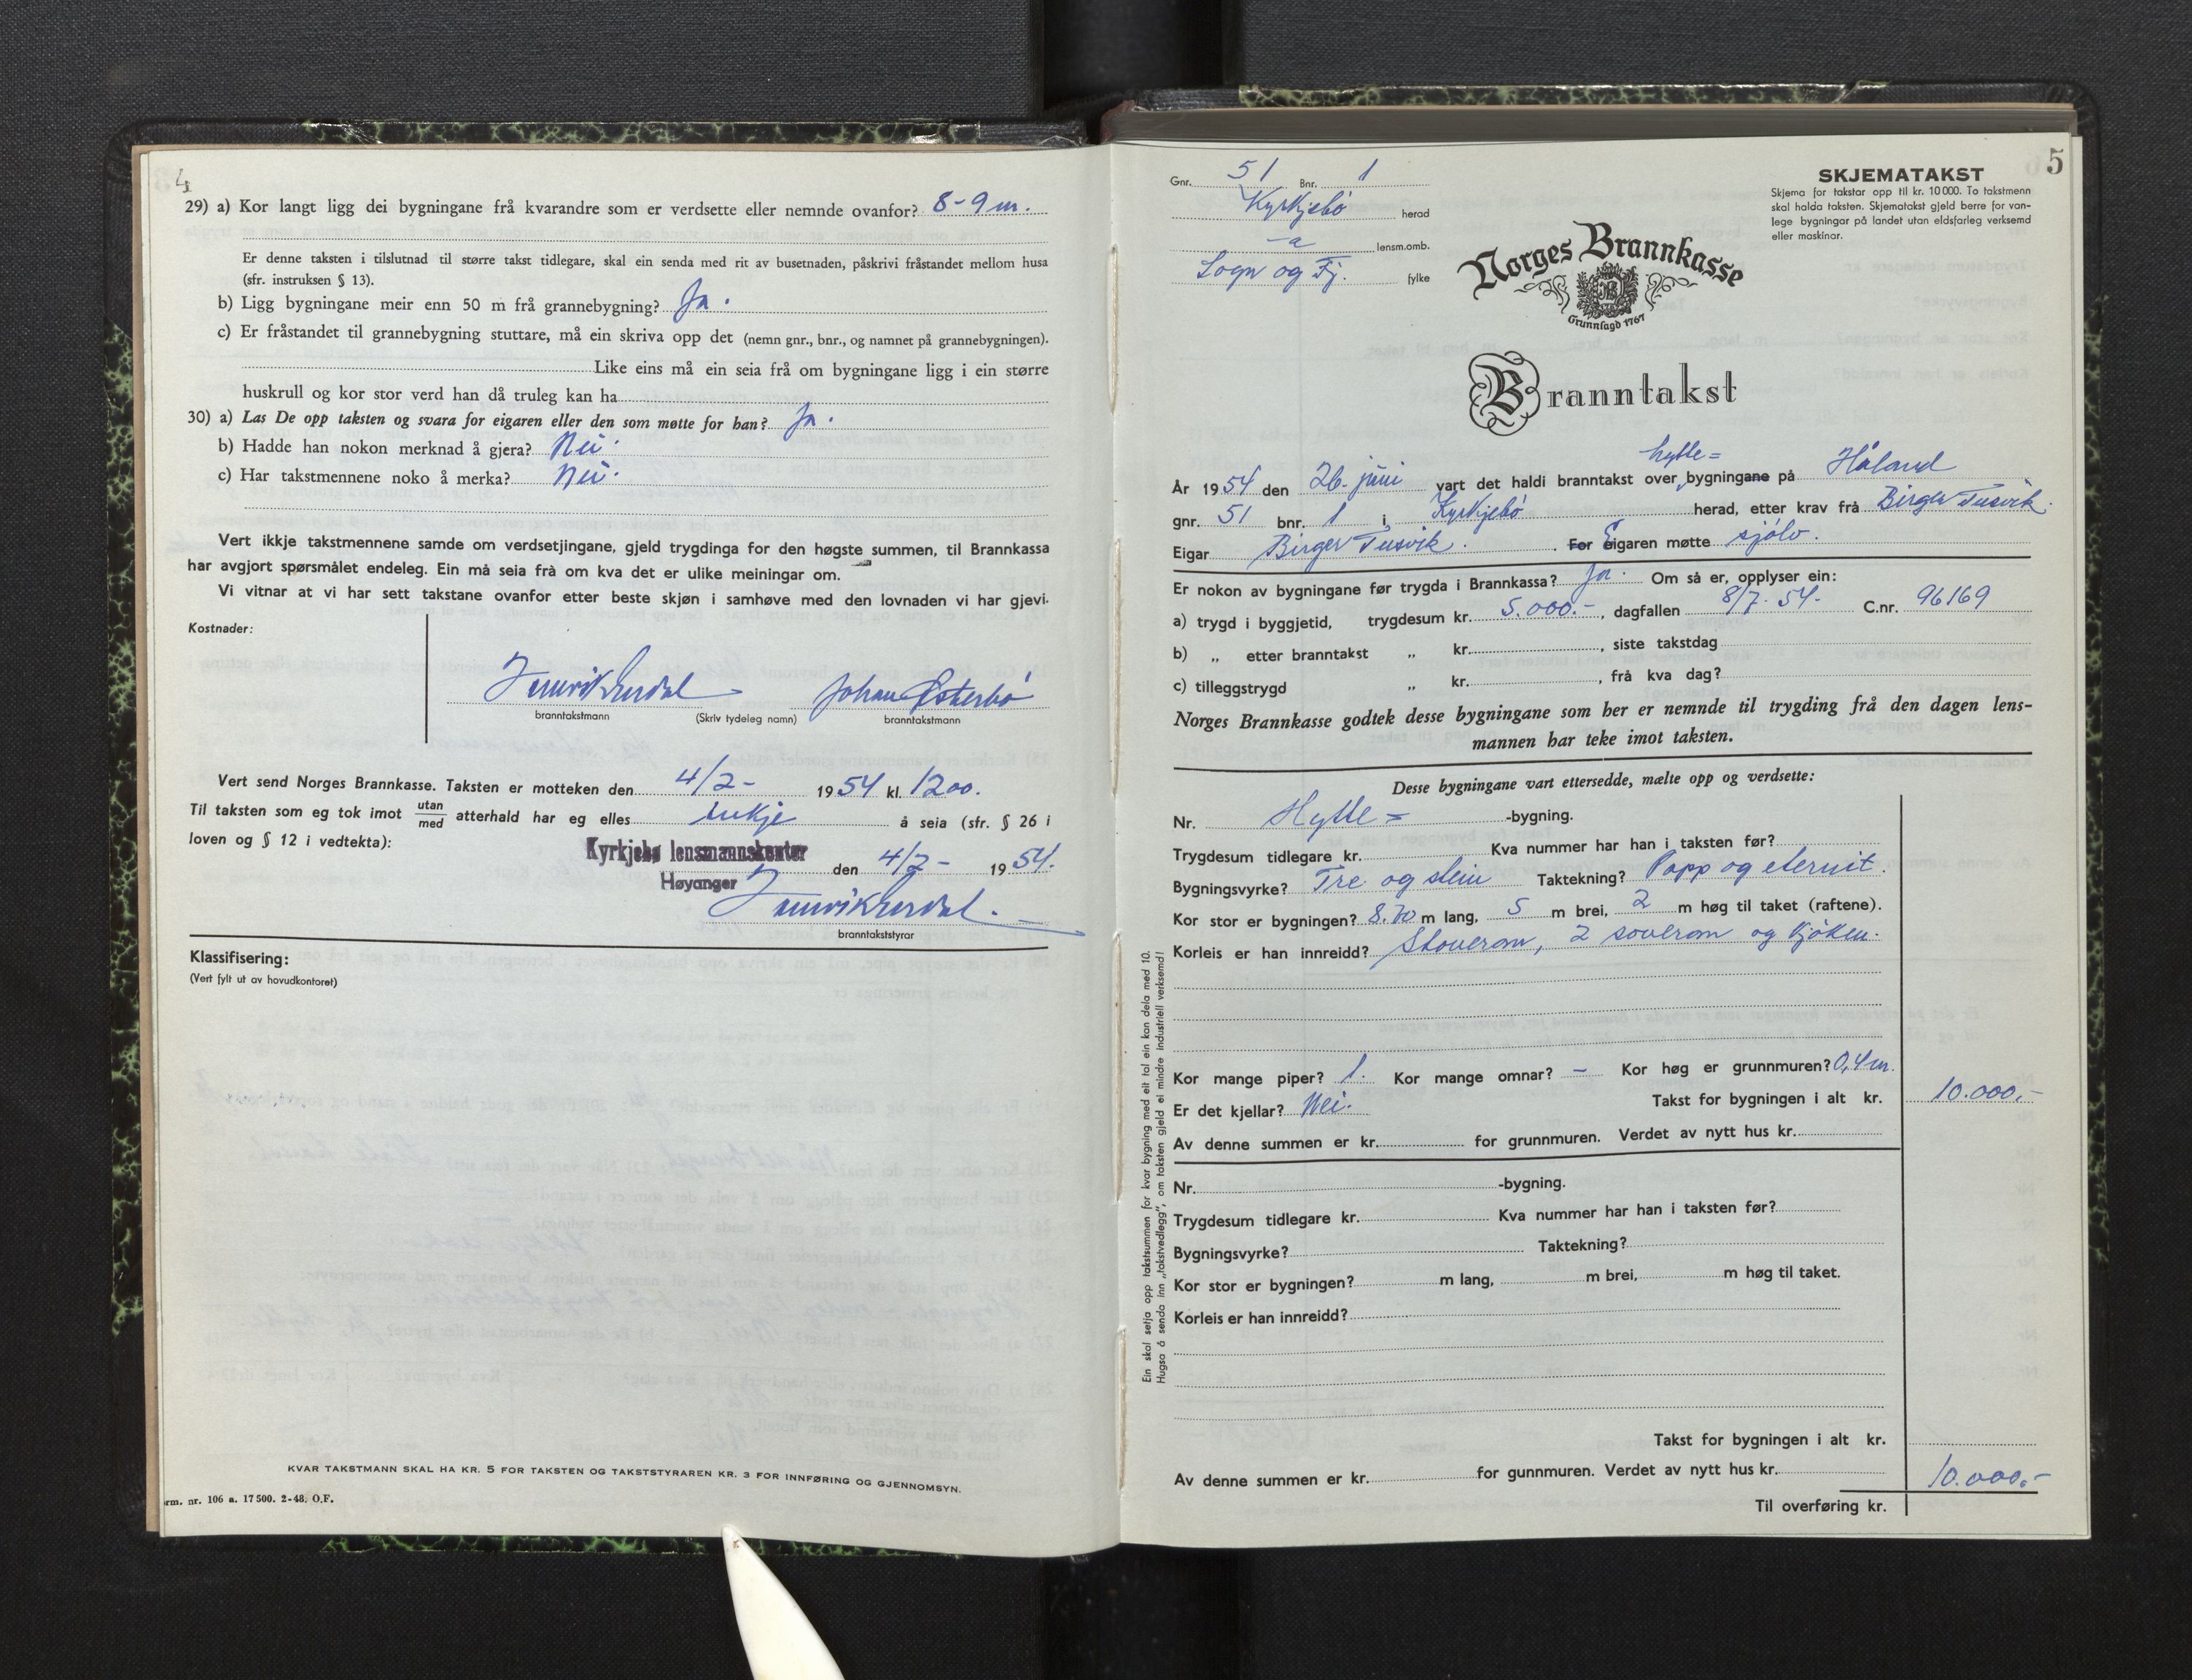 4
29) a) Kor langt ligg dei bygningane frå kvarandre som er verdsette eller nemnde ovanfor? 8-9 m.
Er denne taksten i tilslutnad til større takst tidlegare, skal ein senda med rit av busetnaden, påskrivi fråstandet mellom husa
(sfr. instruksen § 13).
b) Ligg bygningane meir enn 50 m frå grannebygning? Ja.
c) Er fråstandet til grannebygning stuttare, må ein skriva opp det (nemn gnr., bnr., og namnet på grannebygningen).
Like eins må ein seia frå om bygningane ligg i ein større
huskrull og kor stor verd han då truleg kan ha
30) a) Las De opp taksten og svara for eigaren eller den som møtte for han? Ja.
b) Hadde han nokon merknad å gjera? Nei.
c) Har takstmennene noko å merka? Nei.
Vert ikkje takstmennene samde om verdsetjingane, gjeld trygdinga for den høgste summen, til Brannkassa
har avgjort spørsmålet endeleg. Ein må seia frå om kva det er ulike meiningar om.
Vi vitnar at vi har sett takstane ovanfor etter beste skjøn i samhøve med den lovnaden vi har gjevi.
Kostnader:
Johan Østerbø
branntakstmann (Skriv tydeleg namn) branntakstmann
Vert send Norges Brannkasse. Taksten er motteken den 4/2- 1954 kl. 1200.
Til taksten som eg tok imot utan/med atterhald har eg elles inkje å seia (sfr. § 26 i
loven og § 12 i vedtekta):
Kyrkjebø lensmannskontor den 4/2- 1954.
Høyanger
branntakststyrar
Klassifisering:
(Vert fylt ut av hovudkontoret)
KVAR TAKSTMANN SKAL HA KR. 5 FOR TAKSTEN OG TAKSTSTYRAREN KR. 3 FOR INNFØRING OG GJENNOMSYN.
rm. nr. 106 a. 17500. 2-48. O.F.
5
Gnr. 51 Bnr. 1
Kyrkjebø herad
-a lensm.omb.
Sogn og Fj. fylke
SKJEMATAKST
Skjema for takstar opp til kr. 10 000. To takstmenn
skal halda taksten. Skjematakst gjeld berre for van-
lege bygningar på landet utan eldsfarleg verksemd
eller maskinar.
Norges Brannkasse
Grunnlagd 1767
Branntakst
hytte=
År 1954 den 26. juni vart det haldi branntakst over bygningane på Håland
gnr. 51 bnr. 1 i Kyrkjebø herad, etter krav frå Birger Tusvik.
Eigar Birger Tusvik. For Eigaren møtte sjølv.
Er nokon av bygningane før trygda i Brannkassa? Ja. Om så er, opplyser ein:
a) trygd i byggjetid, trygdesum kr. 5.000.-, dagfallen 8/7. 54. C.nr. 96169
b) „ etter branntakst „ kr. , siste takstdag
c) tilleggstrygd „ kr. , frå kva dag?
Norges Brannkasse godtek desse bygningane som her er nemnde til trygding frå den dagen lens-
mannen har teke imot taksten.
Desse bygningane vart ettersedde, mælte opp og verdsette:
Nr. Hytte= -bygning.
Trygdesum tidlegare kr. Kva nummer har han i taksten før?
Bygningsvyrke? Tre og stein Taktekning? Papp og eternit.
Kor stor er bygningen? 8.70 m lang, 5 m brei, 2 m høg til taket (raftene).
Korleis er han innreidd? Stoverom, 2 soverom og kjøken.
Kor mange piper? 1. Kor mange omnar? - Kor høg er grunnmuren? 0,4 m.
Er det kjellar? Nei. Takst for bygningen i alt kr. 10.000,-
Av denne summen er kr. for grunnmuren. Verdet av nytt hus kr.
Nr. -bygning.
Trygdesum tidlegare kr. Kva nummer har han i taksten før?
Bygningsvyrke? Taktekning?
Kor stor er bygningen? m lang, m brei, m høg til taket.
Korleis er han innreidd?
Takst for bygningen i alt kr.
Av denne summen er kr. for gunnmuren. Verdet av nytt hus kr.
10.000,-
Til overføring kr.
Ein skal setja opp takstsummen for kvar bygning med eit tal ein kan dela med 10.
Hugsa å senda inn „takstvedlegg", om taksten gjeld ei mindre industriell verksemd!